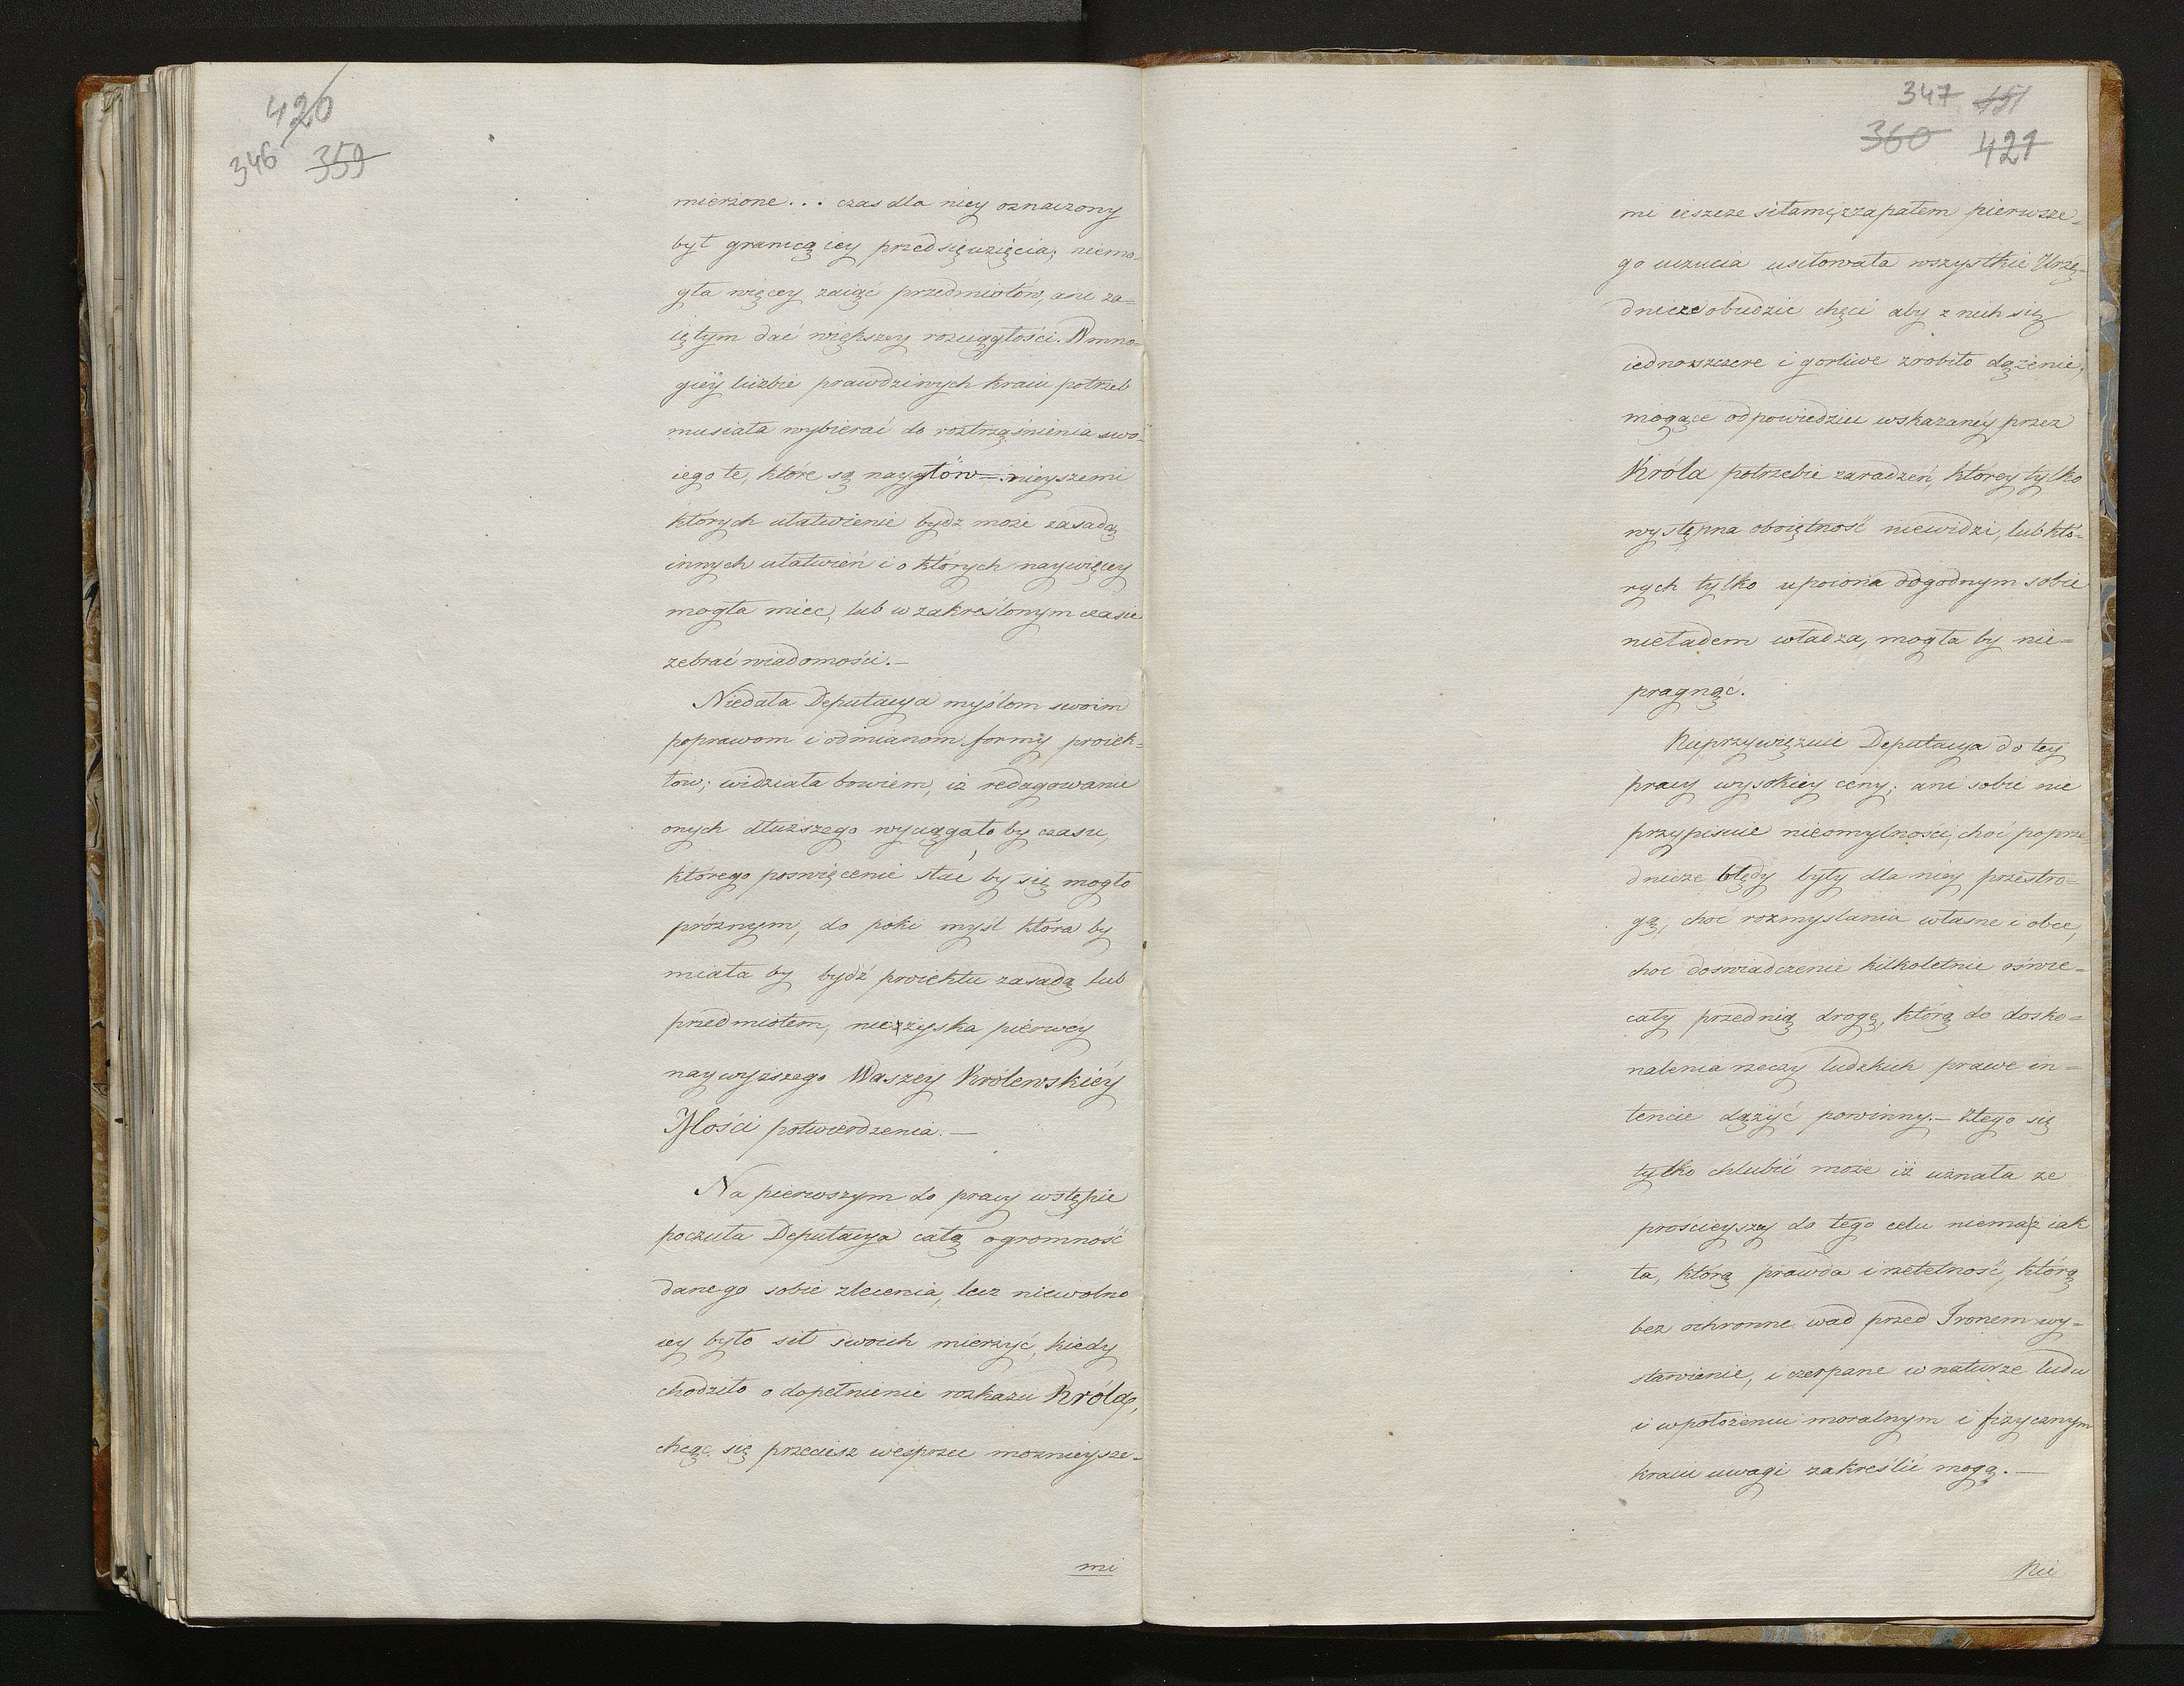 420
346 359
mierzone... czas dla niey oznaczony
był granicą iey przedsięwzięcia; niemo-
gła więcey zaiąć przedmiotów, ani za-
iętym dać większey rozciągłości. W mno-
gięy liczbie prawdziwych kraiu potrzeb
musiała wybierać do roztrząśnienia swo-
iego te, które są nayglów-nieyszemi
których ułatwienie bydz może zasadą
innych ułatwień i o których naywięcey
mogła miec, lub w zakreślonym czasie
zebrać wiadomości.—
Niedała Deputacya myślom swoim
poprawom i odmianom formy proiek-
tow; widziała bowiem, iż redagowanie
onych dłuższego wyciągało by czasu,
którego poswięcenie stać by się mogło
próżnym, do poki myśl która by
miała by bydź proiektu zasadą lub
przedmiotem, niezyska pierwéy
naywyższego Waszey Królewskiéy
Mości potwierdzenia.—
Na pierwszym do pracy wstępie
poczuła Deputacya całą ogromność
danego sobie zlecenia, lecz niewolno
iey było sił swoich mierzyć, kiedy
chodziło o dopełnienie rozkazu Króla,
chcąc się przeciesz wesprzec moznieysze-
mi
347 451
360 421
mi ieszcze siłami, zzapałem pierwsze-
go uczucia usiłowała wszystkie Urzę-
dnicze obudzić chęci aby z nich się
iedno szczere i gorliwe zrobiło dążenie,
mogące odpowiedziec wskazanéy przez
Króla potrzebie zaradzeń, którey tylko
występna oboiętność niewidzi, lub któ-
rych tylko upoiona dogodnym sobie
nieładem władza, mogła by nie-
pragnąć.
Nieprzywięzuie Deputacya do tey
pracy wysokiey ceny; ani sobie nie
przypisuie nieomylności, choć poprze-
dnicze błędy były dla niey przestro-
gą, choć rozmyslania własne i obce,
choc doswiadczenie kilkoletnie oświe-
cały przednią drogę, którą do dosko-
nalenia rzeczy ludzkich prawe in-
tencie dążyć powinny.— Ztego się
tylko chlubić może iż uznała ze
prościeyszey do tego celu niemasz iak
ta, którą prawda i rzetelność, którą
bez ochronne wad przed Tronem wy-
stawienie, i czerpane w naturze ludu
i wpołożeniu moralnym i fizycznym
kraiu uwagi zakreślić mogą.—
Nie